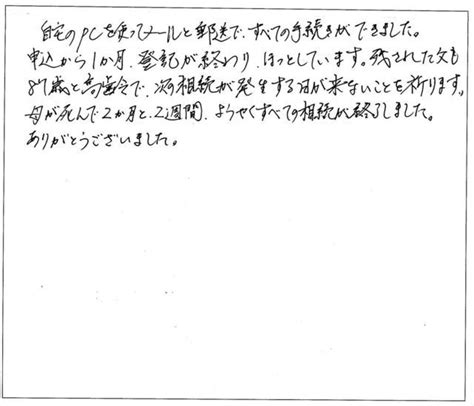 自宅のPCを使ってメールと郵送で、すべての手続きができました。
申込から1か月、登記が終わり、ほっとしています。残された父も
87歳と高齢で、次の相続が発生する日が来ないことを祈ります。
母が死んで2か月と、2週間、ようやくすべての相続が終了しました。
ありがとうございました。